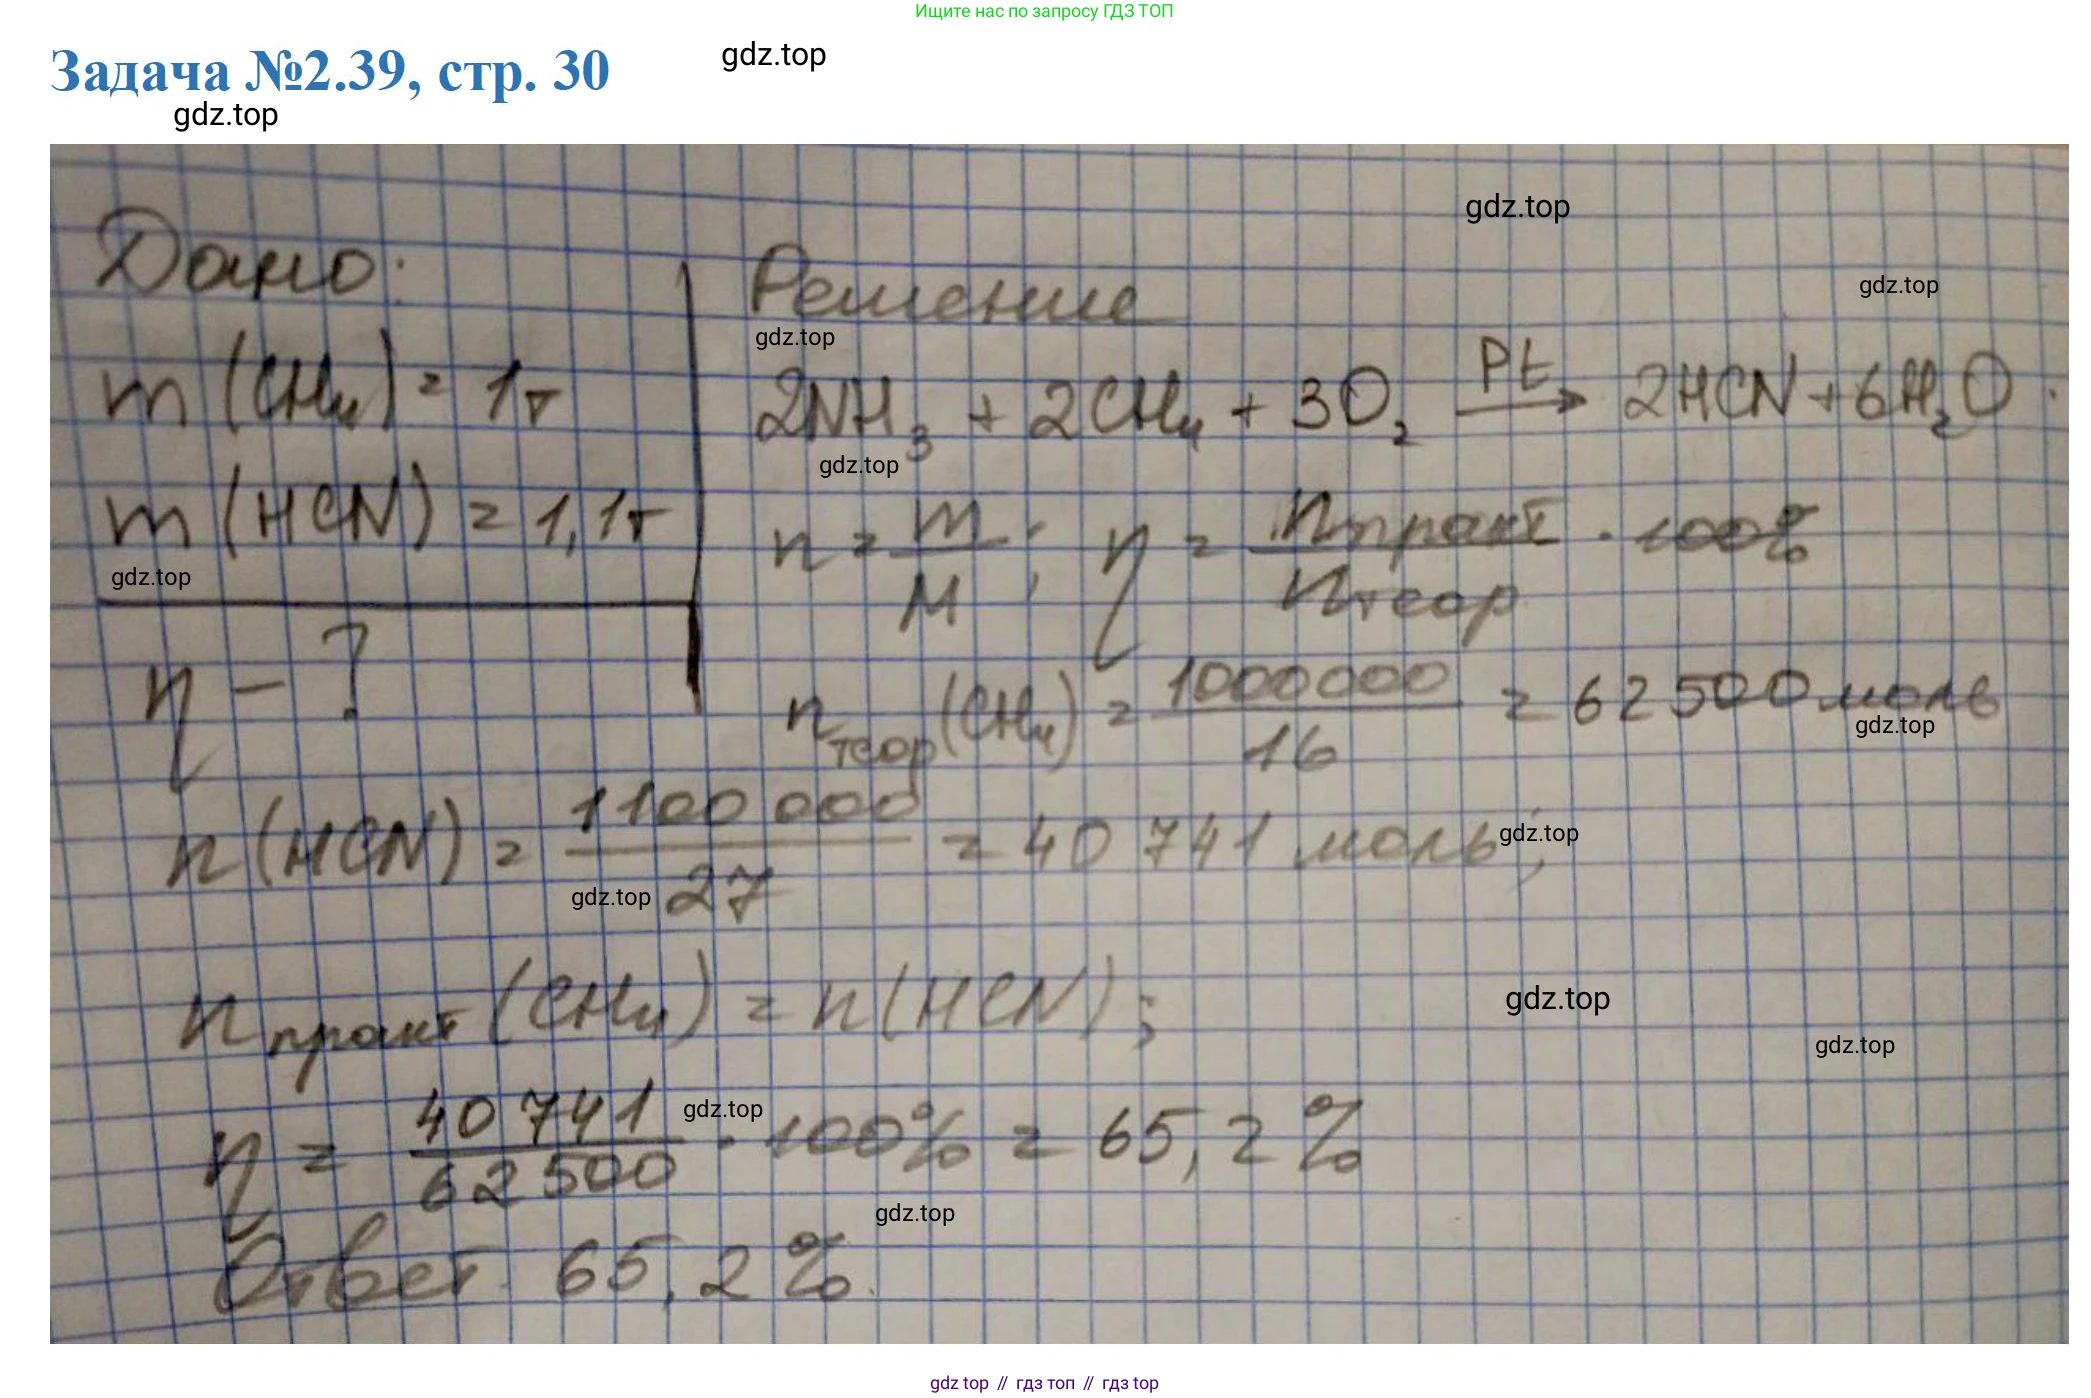 Ищите нас по запросу ГДЗ ТОП
Задача №2.39, стр. 30
gdz.top
gdz.top
gdz.top
Дано:
Решение
gdz.top
gdz.top
m (CH₄) = 1т
2NH₃ + 2CH₄ + 3O₂ Pt → 2HCN + 6H₂O.
gdz.top
m (HCN) = 1,1т
n = m/M; η = nпракт/nтеор · 100%
gdz.top
η - ?
nтеор(CH₄) = 1000000/16 = 62500 моль
gdz.top
n (HCN) = 1100 000/27 = 40 741 моль;
gdz.top
gdz.top
nпракт (CH₄) = n (HCN);
gdz.top
gdz.top
η = 40 741/62500 · 100% = 65,2%
gdz.top
gdz.top
Ответ: 65,2%.
gdz top // гдз топ // гдз top